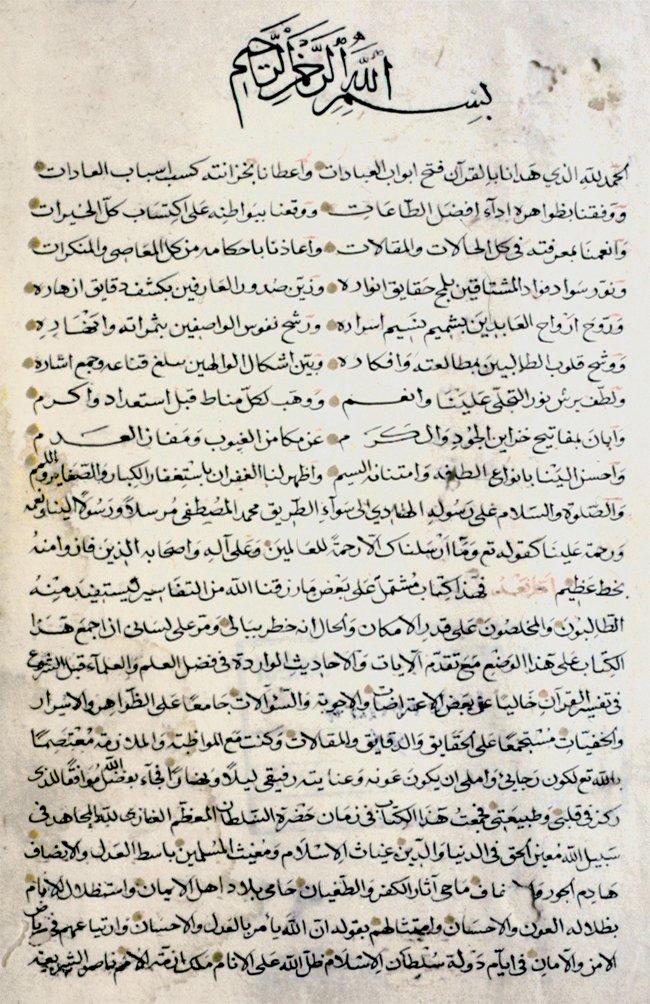 بسم الله الرحمن الرحيم
الحمد لله الذي هدانا بالقرآن فتح ابواب العبادات واعطانا بخزانته كسب اسباب العادات
ووفقنا بظواهره اداء افضل الطاعات ووقعنا ببواطنه على اكتساب كل الخيرات
وانعمنا بمعرفته في كل الحالات والمقالات واعاذنا باحكامه من كل المعاصي والمنكرات
ونور سواد فواد المشتاقين بلمح حقايق انواره وزين صدور العارفين بكشف دقايق ازهاره
وروح ارواح العابدين بشميم نسيم اسراره ورشح نفوس الواصفين بثمراته
ووشح قلوب الطالبين بمطالعته وافكاره وبين اشكال الوالهين قناعه وجمع اشاره
ولطف نور التجلى علينا وانعم ووهب لكل مناط قبل استعداد واكرم
وابان بمفاتيح خزاين الجود والكرم عن مكامن الغيوب ومفاز العدم
واحسن الينا بانواع الطافه وامتنانه واظهر لنا الغفران باستغفار الكبار والصغاير
والصلوة والسلام على رسوله الهادي الى سواء الطريق محمد المصطفى مرسلا ورسولا الينا ونعمه
ورحمة علينا كقوله تع وما ارسلناك الا رحمة للعالمين وعلى آله واصحابه الذين فازوا منه
بخط عظيم اما بعد فهذا كتاب مشتمل على بعض ما رزقنا الله من التفاسير ليستفيد منه
الطالبون والمخلصون على قدر الامكان والحال انه خطر ببالي ومر على لساني ان اجمع هذا
الكتاب على هذا الوضع مع تقدم الآيات والاحاديث الواردة في فضل العلم والعلماء قبل الشروع
في تفسير القرآن خاليا عن بعض الاعتراضات والاجوبة والسؤالات جامعا على الظواهر والاسرار
والخفيات مستجمعا على الحقايق والدقايق والمقالات وكنت مع المواظبة والملازمة معتصما
بالله تع لكون رجائي واملى ان يكون عونه وعنايته رفيقي ليلا ونهارا فجاء بفضل الله موافقا للذى
ركز في قلبي وطبيعتي فجمعت هذا الكتاب في زمان حضرة السلطان المعظم الغازى لله المجاهد في
سبيل الله معين الحق في الدنيا والدين غياث الاسلام ومغيث المسلمين باسط العدل والانصاف
هادم الجور ماحى آثار الكفر والطغيان حامى بلاد اهل الايمان واستظلال الانام
بظلاله العون والاحسان وامتثالهم بقوله ان الله يأمر بالعدل والاحسان وارتباعهم في رياض
الامن والامان في ايام دولة سلطان الاسلام ظل الله على الانام ملك ازمة الامم ناصر الشريعة